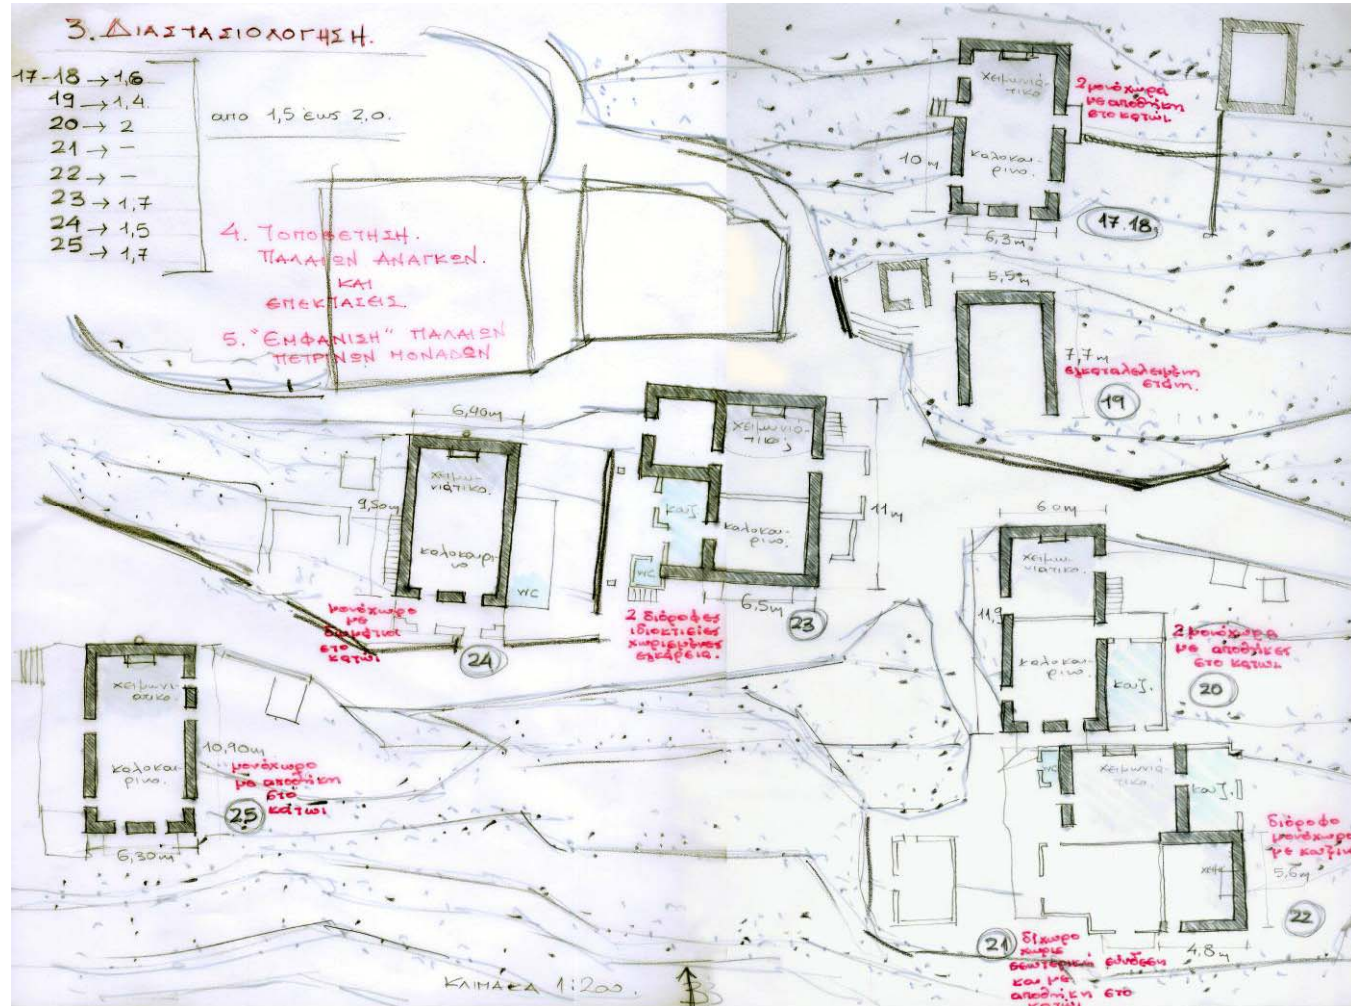 3. ΔΙΑΣΤΑΣΙΟΛΟΓΗΣΗ.
17-18 → 1,6
19 → 1,4
20 → 2
21 → -
22 → -
23 → 1,7
24 → 1,5
25 → 1,7
απο 1,5 έως 2,0.
4. ΤΟΠΟΘΕΤΗΣΗ.
ΠΑΛΑΙΩΝ ΑΝΑΓΚΩΝ.
ΚΑΙ
ΕΠΕΚΤΑΣΕΙΣ.
5. "ΕΜΦΑΝΙΣΗ" ΠΑΛΑΙΩΝ
ΠΕΤΡΙΝΩΝ ΜΟΝΑΔΩΝ
χειμωνιά-
τικο
καλοκαι-
ρινο.
10 m
6,3 m.
2 μονόχωρα
με αποθήκη
στο κατώι
17.18.
5,5 m
7,7 m
εγκαταλελειμένη
στάνη.
19
6,40 m
9,50 m
χειμω-
νιάτικο.
καλοκαιρι-
νο
WC
μονόχωρο
με
δωμάτιο
στο
κατώι
24
χειμωνιά-
τικο.
καλοκαι-
ρινο.
κουζ.
WC
11 m
6,5 m
23
2 διόροφες
ιδιοκτισίες
χωρισμένες
εγκάρσια.
6.0 m
11,9
χειμω-
νιάτικο.
καλοκαι-
ρινο.
κουζ.
2 μονόχωρα
με αποθήκες
στο κατώι
20
χειμωνι-
ατικο.
καλοκαι-
ρινο.
10,90 m
6,30 m
μονόχωρο
με αποθήκη
στο
κάτωι
25
WC
χειμωνιά-
τικο.
κουζ.
διόροφο
μονόχωρο
με κουζίνα
5,6 m
4,8 m
22
21
δίχωρο
χωρις
εσωτερική σύνδεση
και με
αποθήκη στο
κατώι
ΚΛΙΜΑΚΑ 1:200.
Β